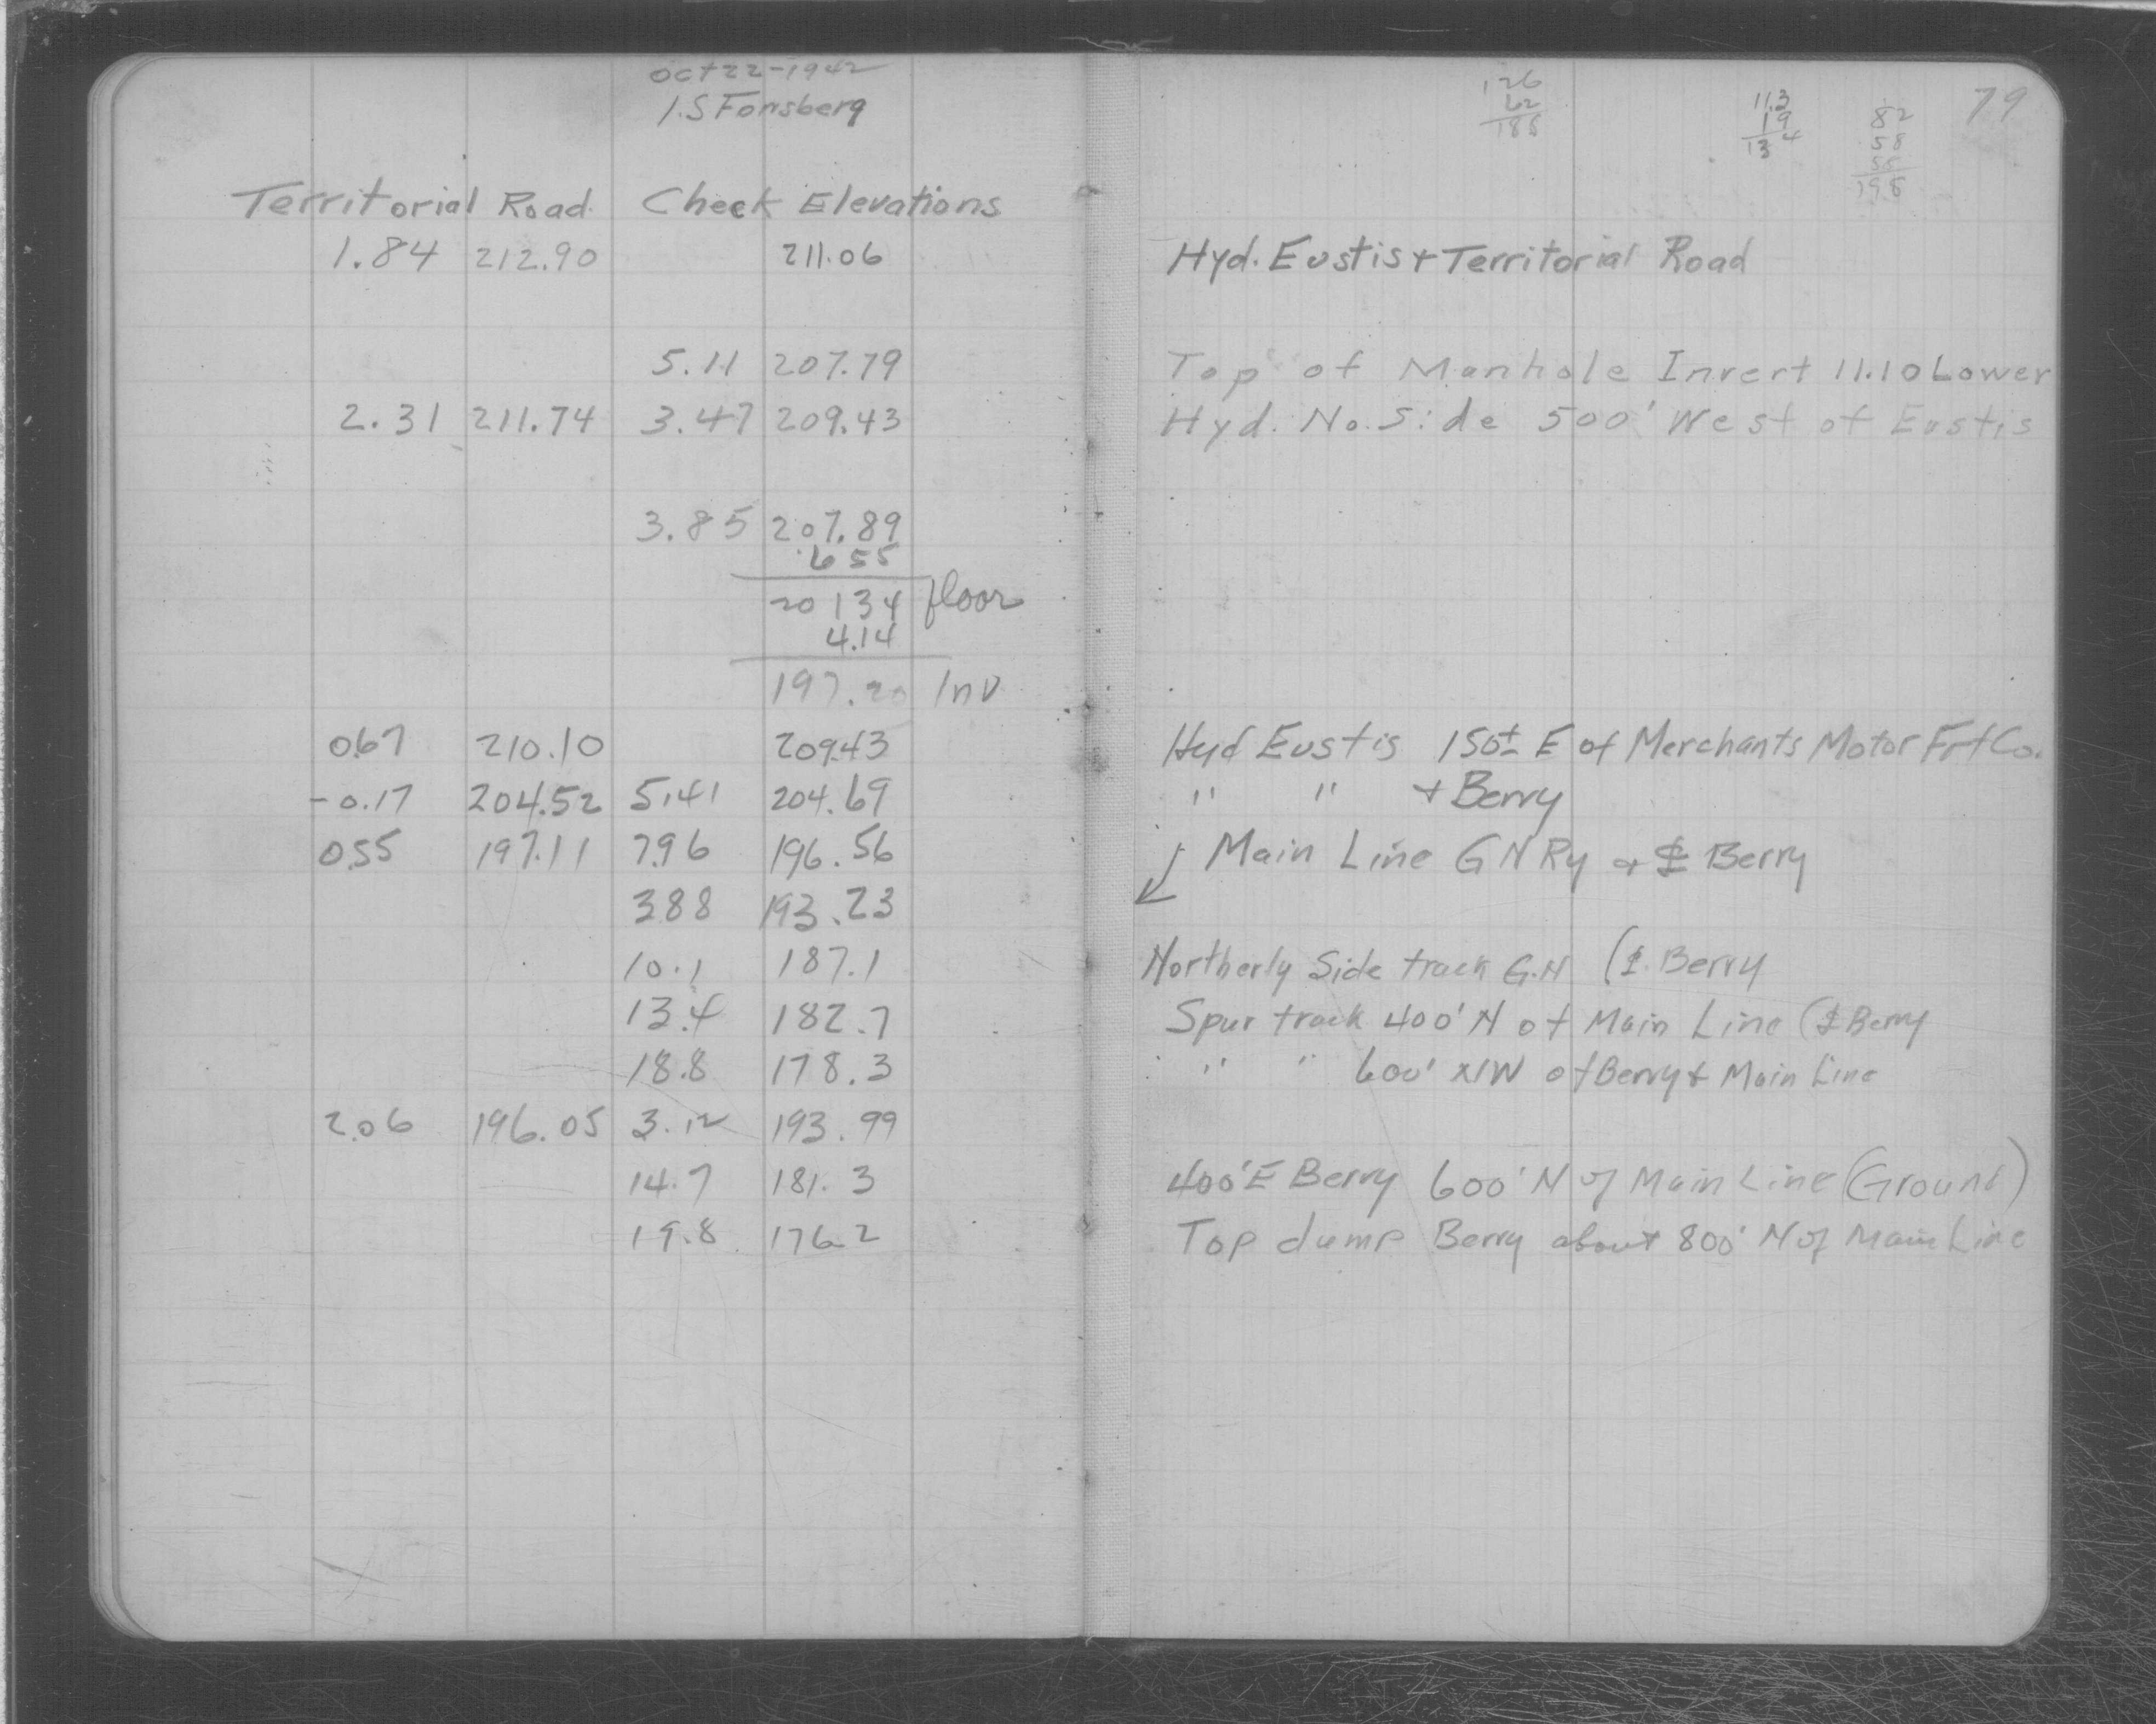 Oct 22-1942
I.S Fonsberg
Territorial Road Check Elevations
1.84 212.90 211.06
5.11 207.79
2.31 211.74 3.47 209.43
3.85 207.89
6 55
201 34 floor
4.14
197.20 Inv
0.67 210.10 209.43
-0.17 204.52 5.41 204.69
0.55 197.11 7.96 196.56
3.88 193.23
10.1 187.1
13.4 182.7
18.8 178.3
2.06 196.05 3.12 193.99
14.7 181.3
19.8 176.2
79
126
62
188
11.3
19
13 4
82
58
55
195
Hyd. Eustis + Territorial Road
Top of Manhole Invert 11.10 Lower
Hyd. No. Side 500' West of Eustis
Hyd Eustis 150± E of Merchants Motor Frt Co.
" " + Berry
↙ Main Line G N Ry + ℄ Berry
Northerly Side track G.N (℄ Berry
Spur track 400' N of Main Line (℄ Berry
" " 600' NW of Berry + Main Line
400' E Berry 600' N of Main Line (Ground)
Top dump Berry about 800' N of Main Line